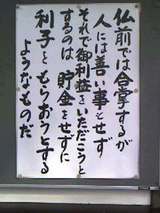 仏前では合掌するが
人には善い事をせず
それで御利益をいただこうと
するのは貯金をせずに
利子をもらおうとする
ようなものだ